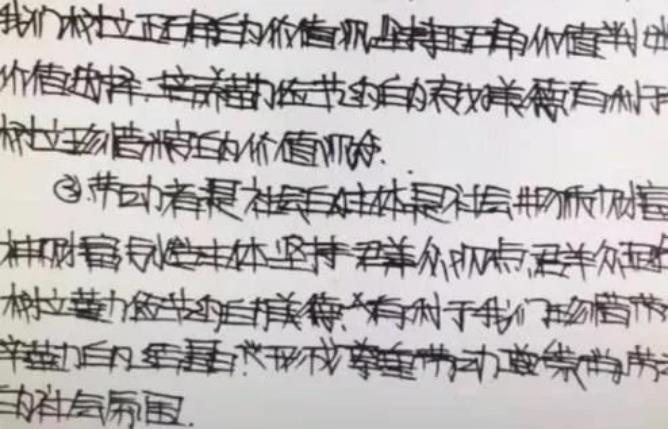 我们树立正确的价值观,坚持正确价值判
价值选择,培养勤俭节约的美德,有利于
树立珍惜粮食的价值观念.
③劳动者是社会的主体,是社会物质财富
神财富创造主体.坚持群众观点,群众
树立勤俭节约的美德,有利于我们珍惜劳
辛勤的结晶,形成尊重劳动尊崇劳
的社会氛围.